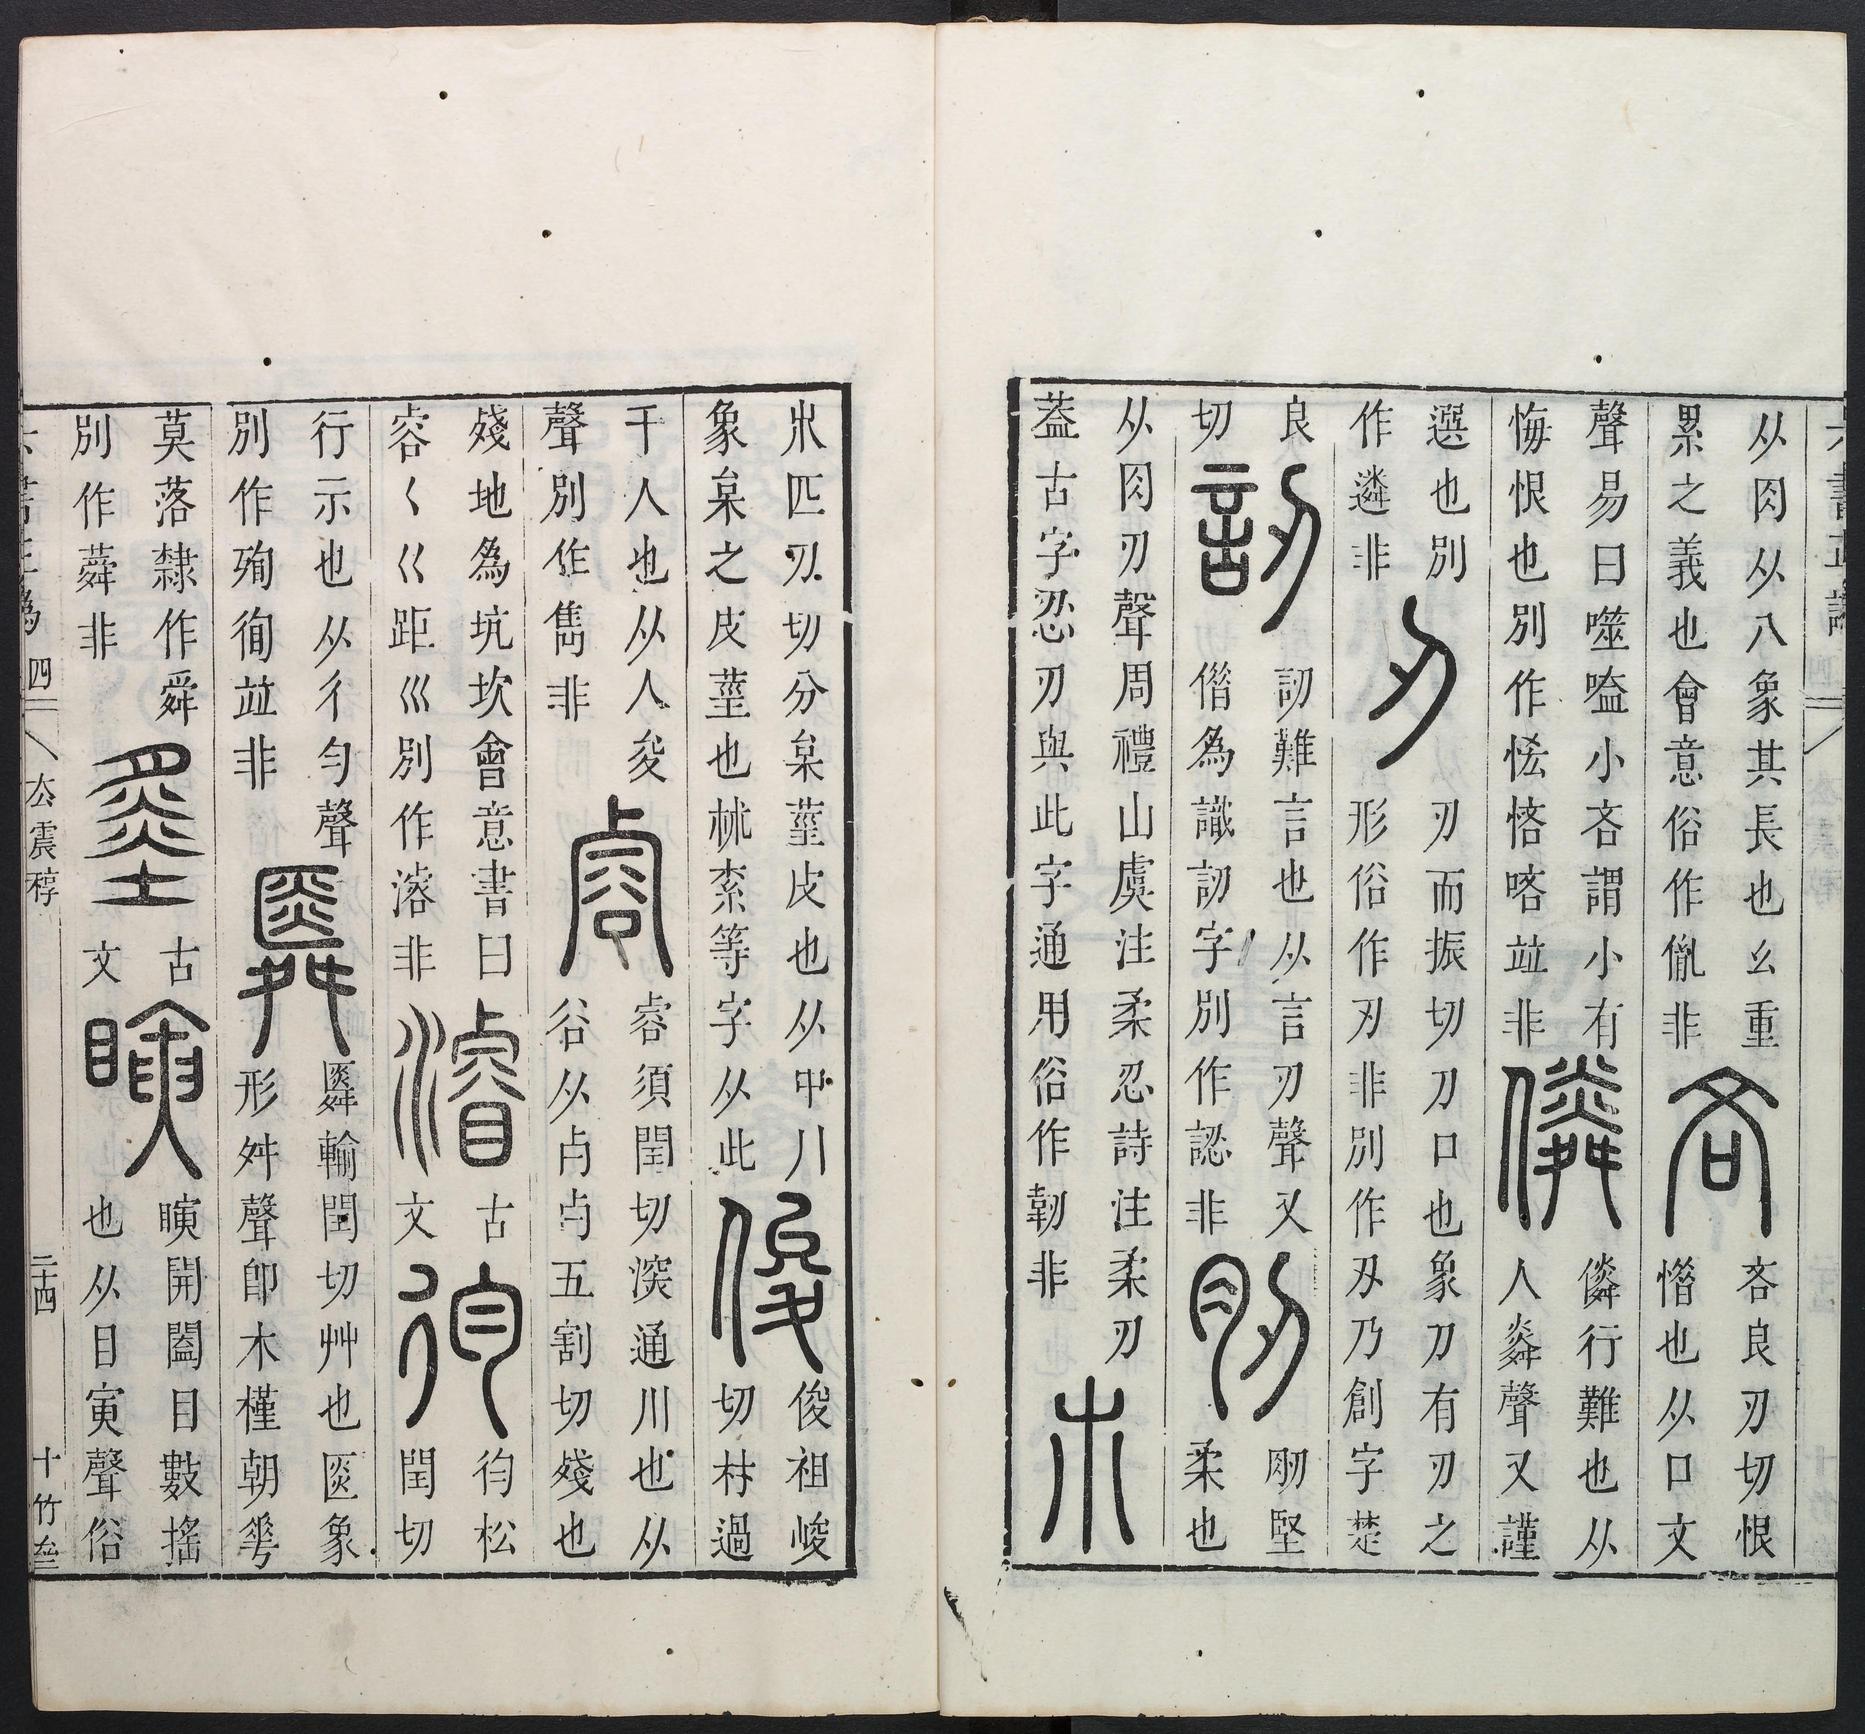 从肉从八象其長也幺重
累之義也會意俗作㣧非
吝
吝良刃切恨
憯也从口文
聲易曰噬嗑小吝謂小有
悔恨也別作恡悋㖁竝非
僯
僯行難也从
人粦聲又謹
選也別
作遴非
刃
刃而振切刀口也象刀有刃之
形俗作刄非別作刅乃創字楚
良
切
訒
訒難言也从言刃聲又
偕為識訒字別作認非
肕
肕堅
柔也
从肉刃聲周禮山虞注柔忍詩注柔刃
葢古字忍刃與此字通用俗作韌非
𣎳
𣎳匹刃切分枲莖皮也从屮八
象枲之皮莖也𣏟紊等字从此
俊
俊祖峻
切材過
千人也从人夋
聲別作雋非
㕡
㕡須閏切深通川也从
谷从歺歺五割切殘也
殘地為坑坎會意書曰
㕡く巜距巛別作濬非
濬
古
文
徇
徇松
閏切
行示也从彳勻聲
別作殉徇竝非
䑞
䑞輸閏切艸也匧象
形舛聲卽木槿朝華
莫落隸作舜
別作蕣非
古
文
瞚
瞚開闔目數搖
也从目寅聲俗
六書正譌
四
厺震稕
二十四
十竹